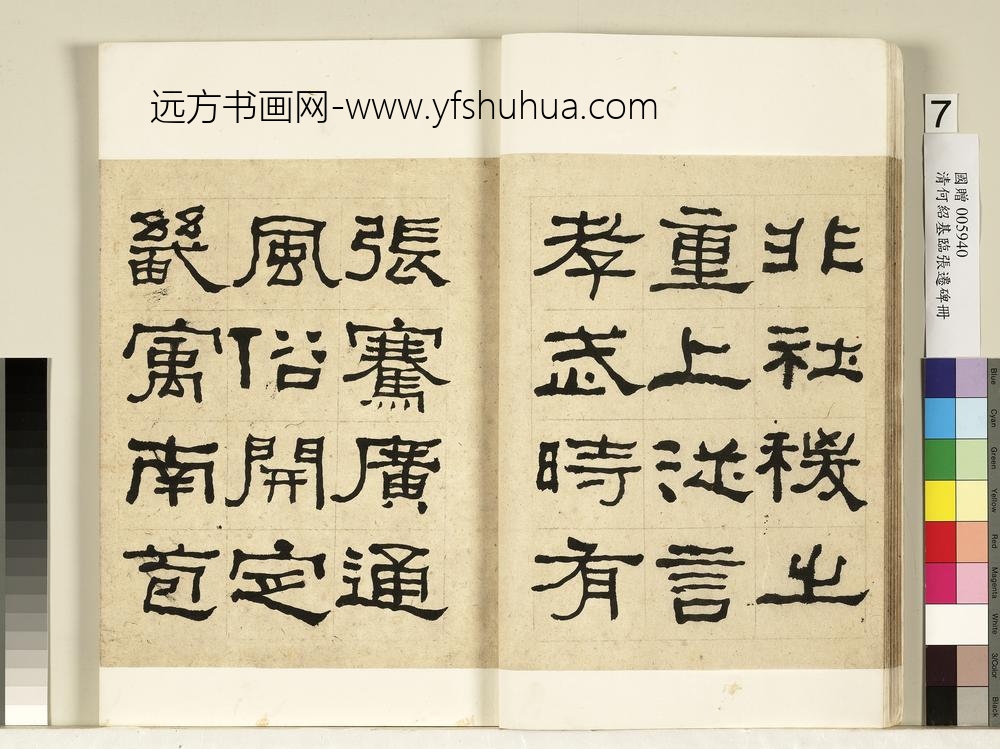 远方书画网-www.yfshuhua.com
非社稷之
重上從言
孝武時有
張騫廣通
風俗開定
畿寓南苞
7
國贈 005940
清何紹基臨張遷碑冊
Blue
Cyan
Green
Yellow
Red
Magenta
White
3/Color
Black